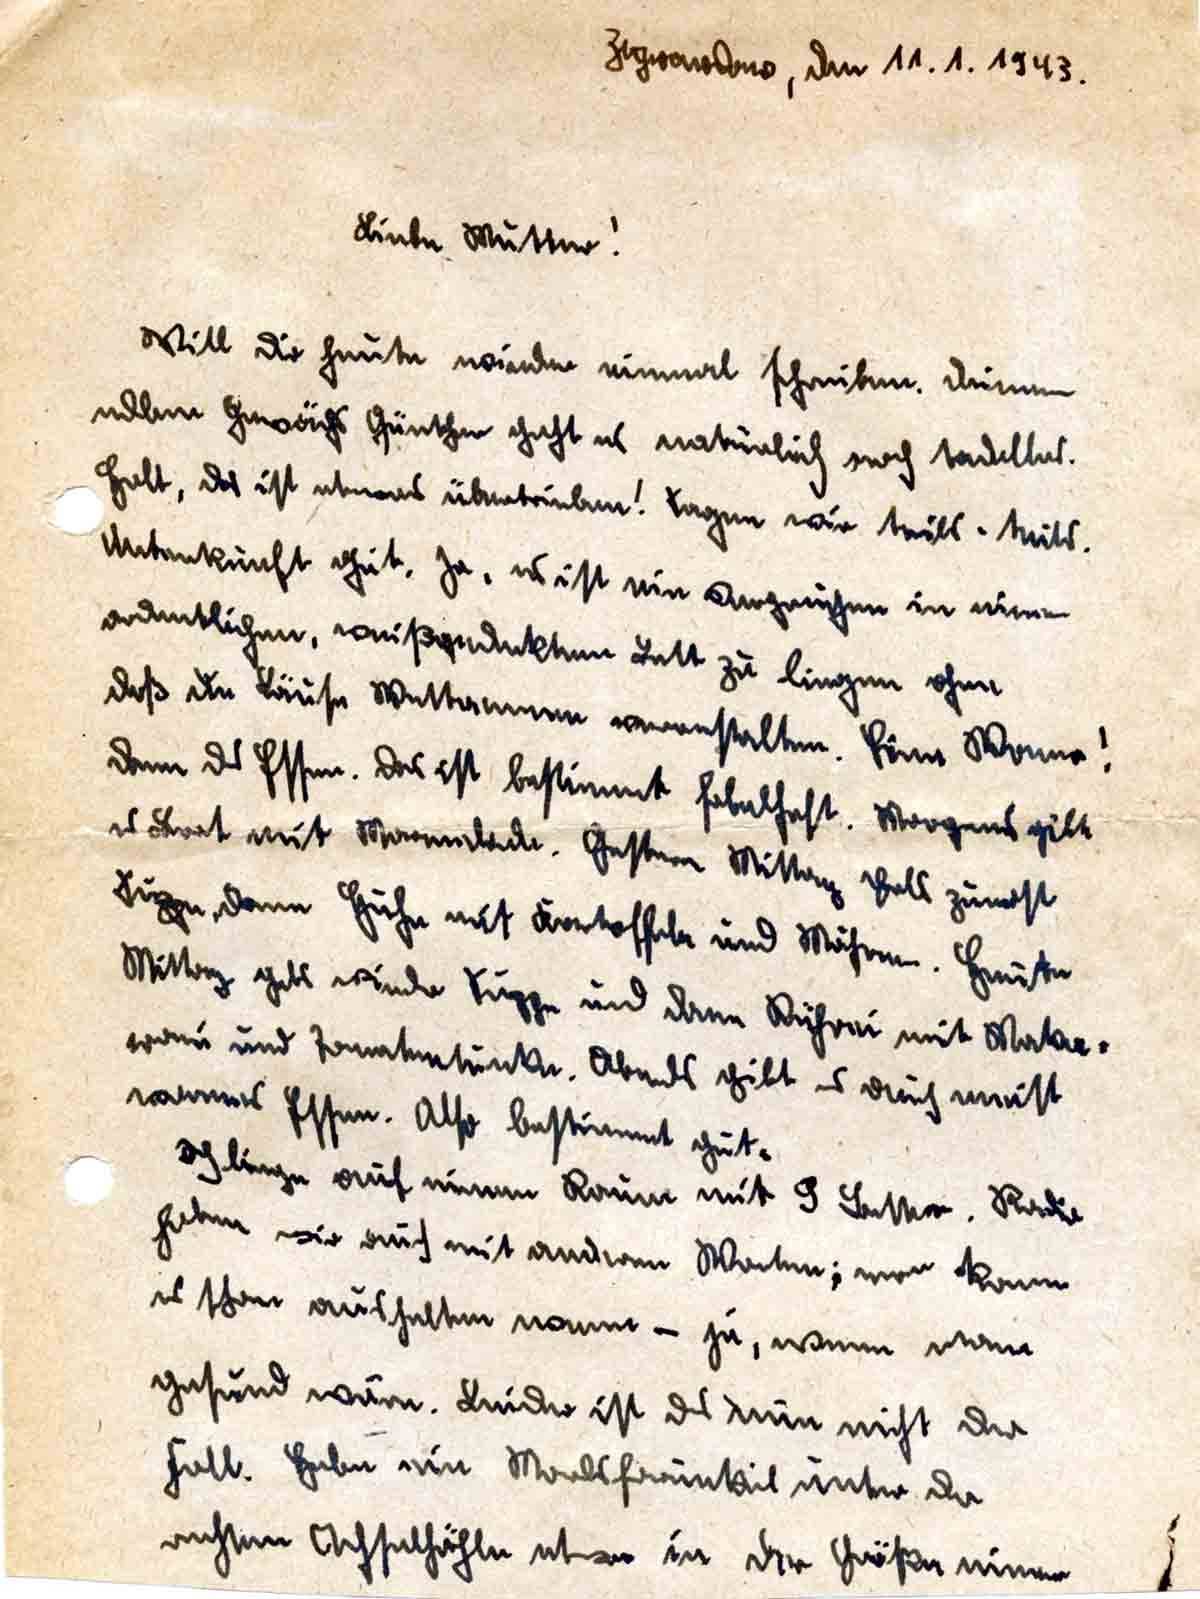 den 11.1.1943.
Liebe Mutter!
Will dir heute wieder einmal schreiben. Deinem
edlem Gewächs Günther geht es natürlich noch tadellos.
Halt, das ist etwas übertrieben! Sagen wir teils-teils.
Unterkunft gut. Ja, es ist ein Vergnügen in einem
ordentlichen, weißgedeckten Bett zu liegen ohne
daß die Läuse Wettrennen veranstalten. Eine Wonne!
Dann das Essen. Das ist bestimmt fabelhaft. Morgens gibt
es Brot mit Marmelade. Gestern Mittag gabs zuerst
Suppe, dann Huhn mit Kartoffeln und Möhren. Heute
Mittag gabs wieder Suppe und dann Rührei mit Makka-
roni und Tomatentunke. Abends gibt es auch meist
warmes Essen. Also bestimmt gut.
Ich liege auf einem Raum mit 9 Betten. Radio
haben wir auch mit anderen Worten; man kann
es schon aushalten wenn – ja, wenn man
gesund wäre. Leider ist das nun nicht der
Fall. Habe ein Mordsfurunkel unter der
rechten Achselhöhle etwa in der Größe einer